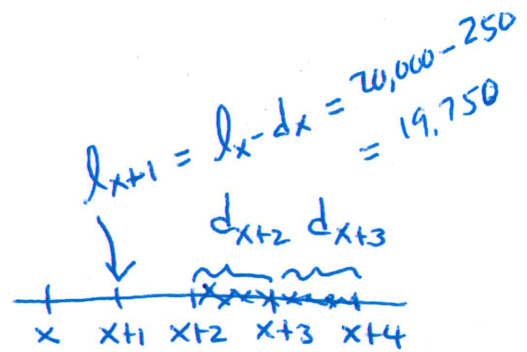 lx+1 = lx - dx = 20,000 - 250
= 19,750
dx+2 dx+3
x x+1 x+2 x+3 x+4